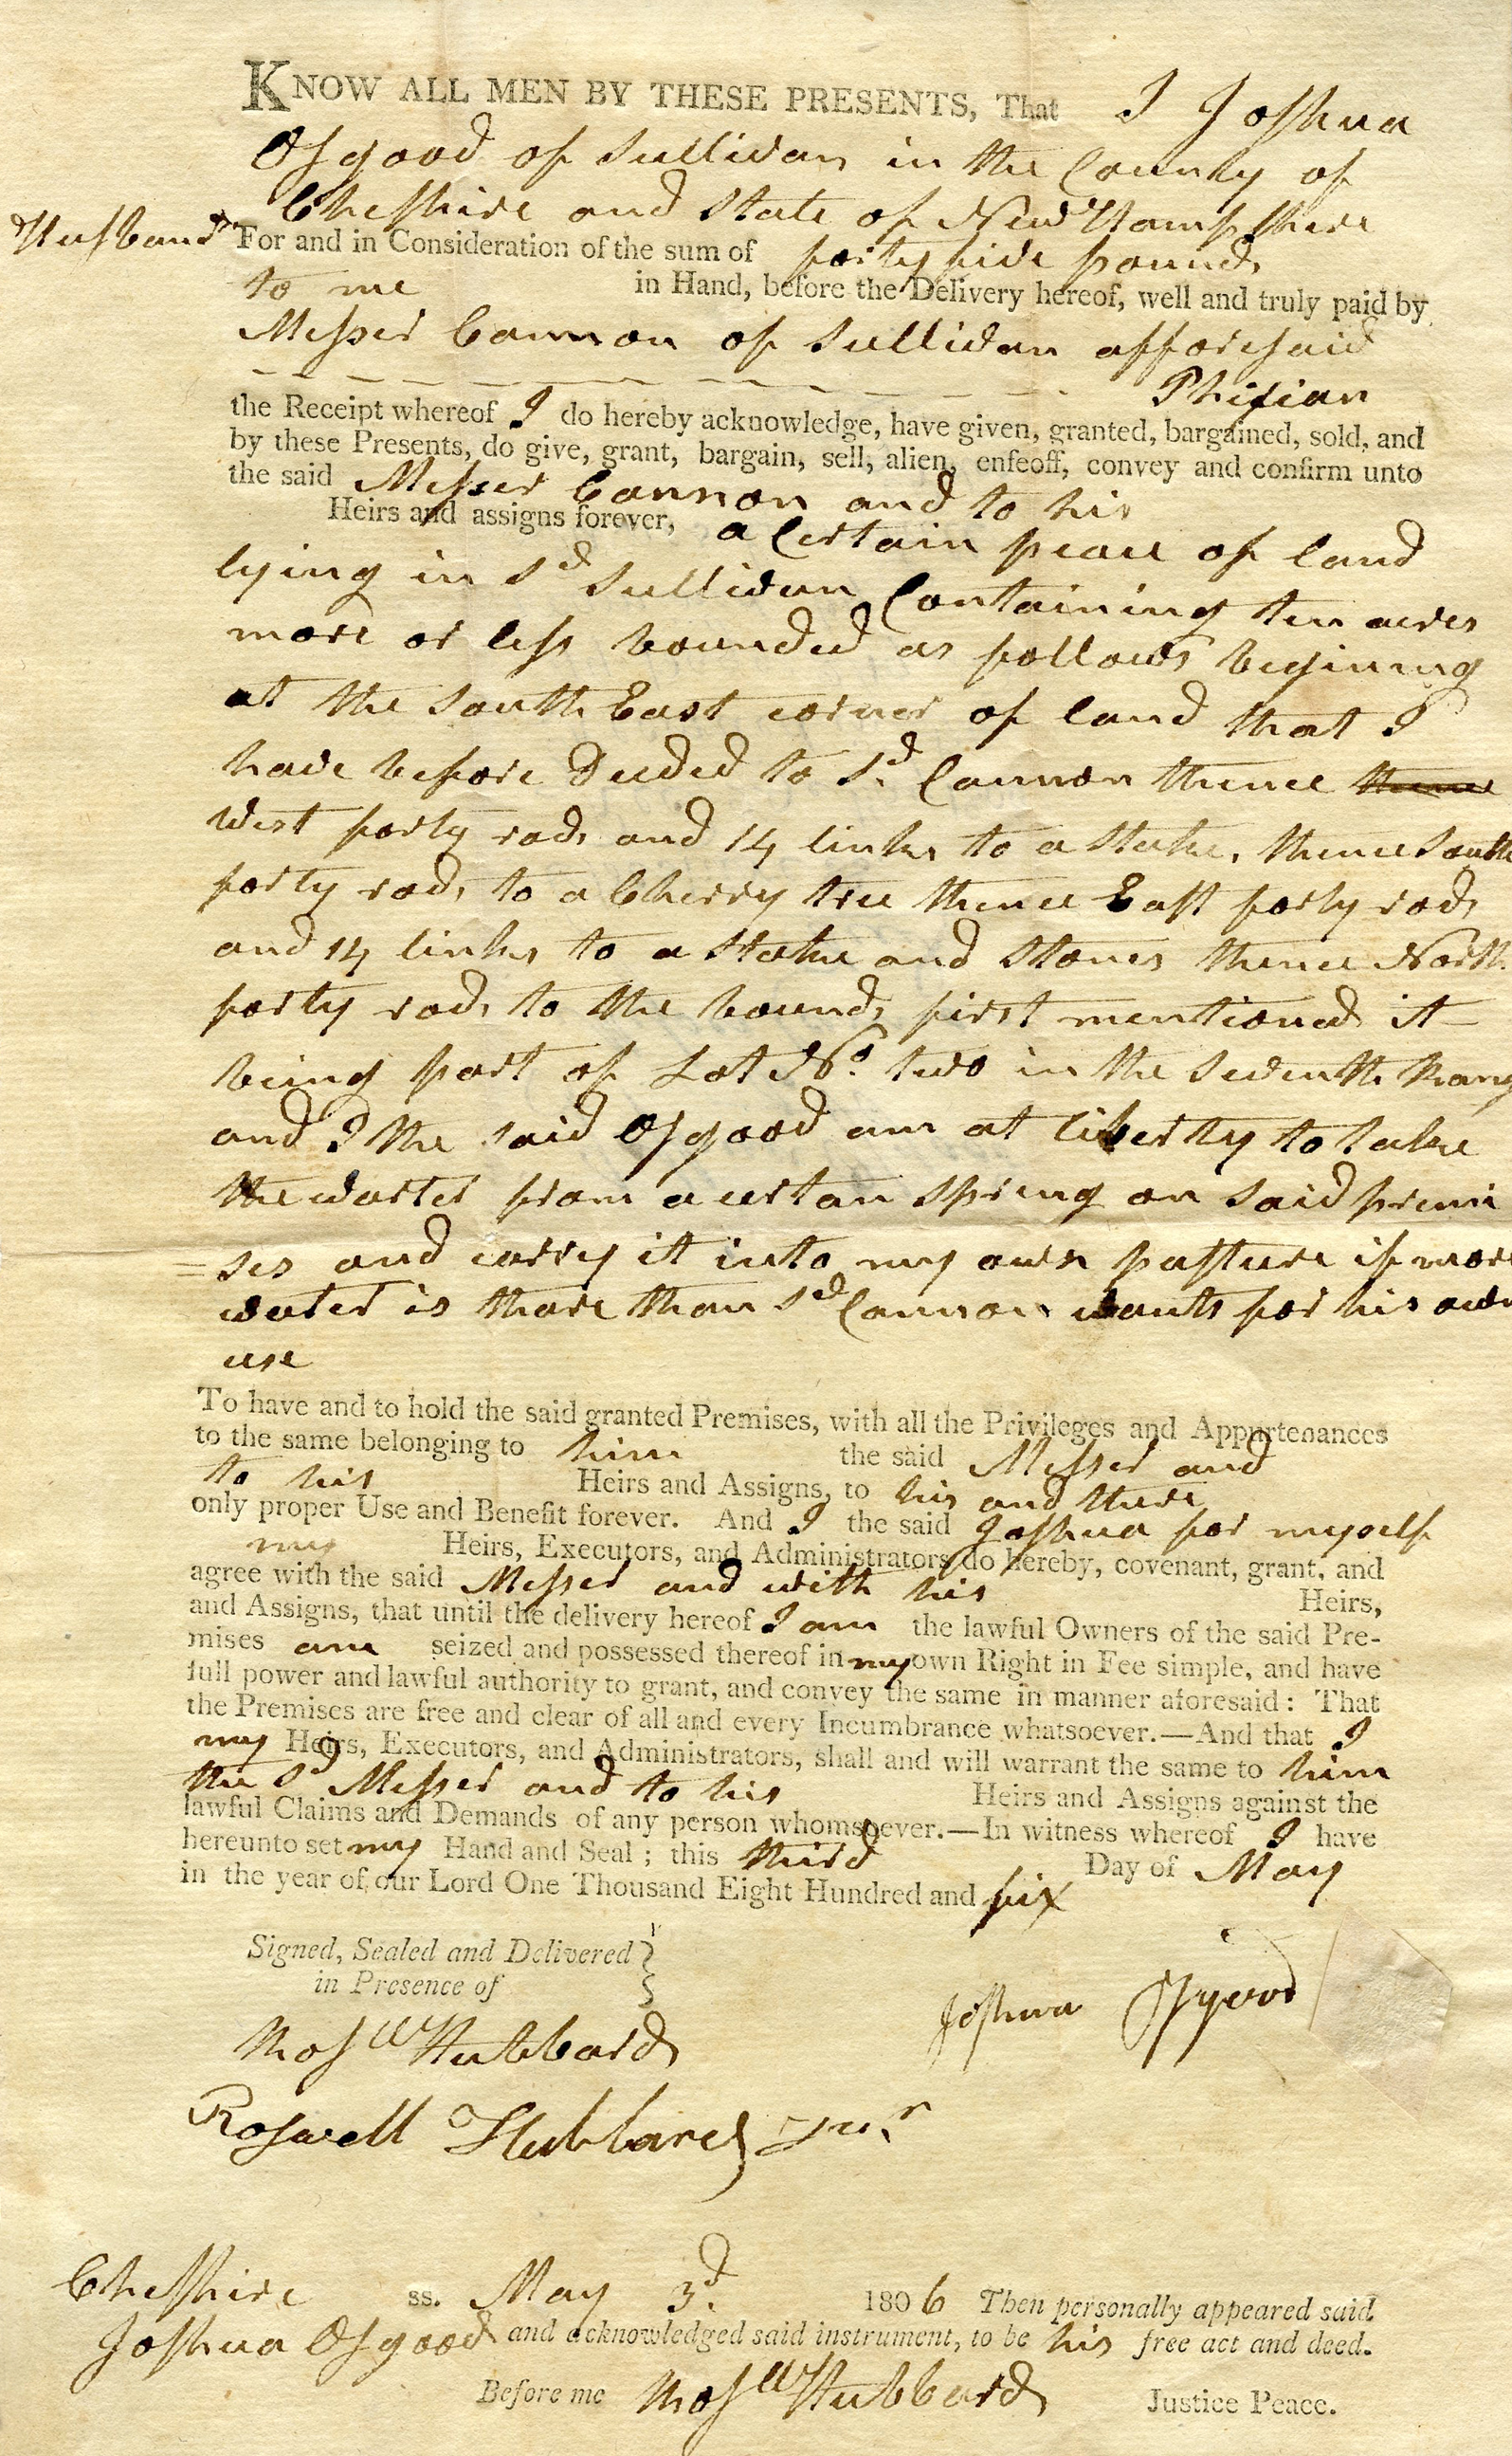 KNOW ALL MEN BY THESE PRESENTS, That I Joshua
Osgood of Sullivan in the County of
Cheshire and State of New Hampshire
Husband
For and in Consideration of the sum of forty five pounds
to me in Hand, before the Delivery hereof, well and truly paid by
Messer Cannon of Sullivan afforesaid
Phisian
the Receipt whereof I do hereby acknowledge, have given, granted, bargained, sold, and
by these Presents, do give, grant, bargain, sell, alien, enfeoff, convey and confirm unto
the said Messer Cannon and to his
Heirs and assigns forever, a Certain peace of land
lying in sd Sullivan Containing ten acres
more or less bounded as follows begining
at the South East corner of land that I
have before Deeded to sd Cannon thence thence
West forty rods and 14 links to a Stake, thence South
forty rods to a Cherry tree thence East forty rods
and 14 links to a Stake and Stones thence North
forty rods to the bounds first mentioned it
being part of Lot No. two in the Seventh Rang
and I the said Osgood am at liberty to take
the warter from a certan Spring on said premi
=ses and carry it into my own pasture if more
water is thare than sd Cannon wants for his own
use
To have and to hold the said granted Premises, with all the Privileges and Appurtenances
to the same belonging to him the said Messer and
to his Heirs and Assigns, to his and there
only proper Use and Benefit forever. And I the said Joshua for myself
my Heirs, Executors, and Administrators do hereby, covenant, grant, and
agree with the said Messer and with his Heirs,
and Assigns, that until the delivery hereof I am the lawful Owners of the said Pre-
mises am seized and possessed thereof in my own Right in Fee simple, and have
full power and lawful authority to grant, and convey the same in manner aforesaid: That
the Premises are free and clear of all and every Incumbrance whatsoever.—And that I
my Heirs, Executors, and Administrators, shall and will warrant the same to him
the sd Messer and to his Heirs and Assigns against the
lawful Claims and Demands of any person whomsoever.—In witness whereof I have
hereunto set my Hand and Seal; this third Day of May
in the year of our Lord One Thousand Eight Hundred and six
Signed, Sealed and Delivered
in Presence of
Joshua Osgood
Rosll Hubbard
Roswell Hubbard Junr
Cheshire ss. May 3d. 1806 Then personally appeared said
Joshua Osgood and acknowledged said instrument, to be his free act and deed.
Before me Rosll Hubbard Justice Peace.